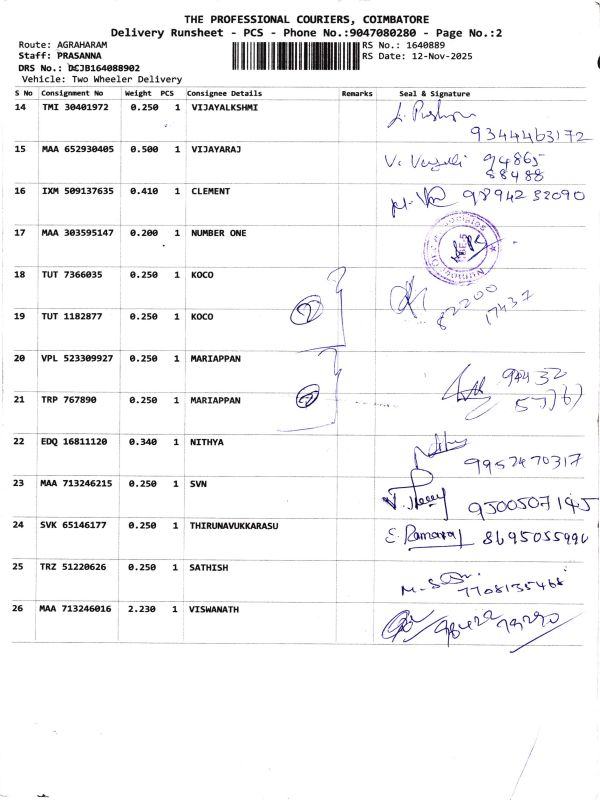 THE PROFESSIONAL COURIERS, COIMBATORE
Delivery Runsheet - PCS - Phone No.:9047080280 - Page No.:2
Route: AGRAHARAM RS No.: 1640889
Staff: PRASANNA RS Date: 12-Nov-2025
DRS No.: DCJB164088902
Vehicle: Two Wheeler Delivery
S No Consignment No Weight PCS Consignee Details Remarks Seal & Signature
14 TMI 30401972 0.250 1 VIJAYALKSHMI
9344463172
15 MAA 652930405 0.500 1 VIJAYARAJ 94865
88488
16 IXM 509137635 0.410 1 CLEMENT 9894232090
17 MAA 303595147 0.200 1 NUMBER ONE
18 TUT 7366035 0.250 1 KOCO
82200
17437
19 TUT 1182877 0.250 1 KOCO
20 VPL 523309927 0.250 1 MARIAPPAN
94432
21 TRP 767890 0.250 1 MARIAPPAN
22 EDQ 16811120 0.340 1 NITHYA
9952470317
23 MAA 713246215 0.250 1 SVN
9500507145
24 SVK 65146177 0.250 1 THIRUNAVUKKARASU E. Ramaraj 8695055996
25 TRZ 51220626 0.250 1 SATHISH
7708135468
26 MAA 713246016 2.230 1 VISWANATH